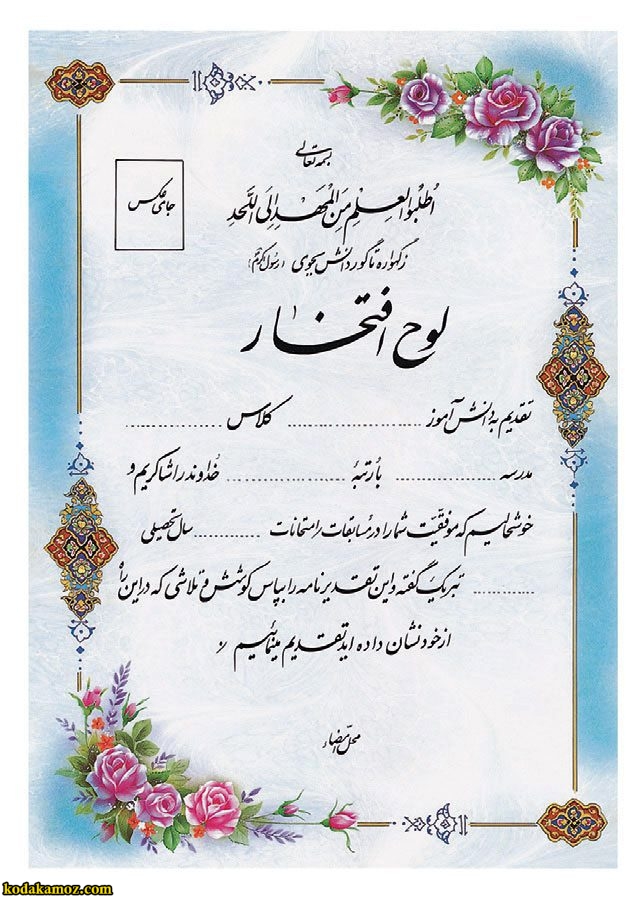 بسمه تعالی
جای عکس
اُطلُبُوا العِلمِ مِنَ المَهدِ اِلَی اللَّحَدِ
زگهواره تا گور دانش بجوی (رسول اکرم)
لوح افتخار
تقدیم به دانش آموز .......................... کلاس ..........................
مدرسه .......................... با رُتبهٔ .......................... خداوند را شاکریم و
خوشحالیم که موفقیّت شما را در مسابقات یا امتحانات .................. سال تحصیلی
.................. تبریک گفته و این تقدیرنامه را بپاس کوشش و تلاشی که در این راه
از خود نشان داده اید تقدیم مینمائیم
محلّ امضاء
kodakamoz.com